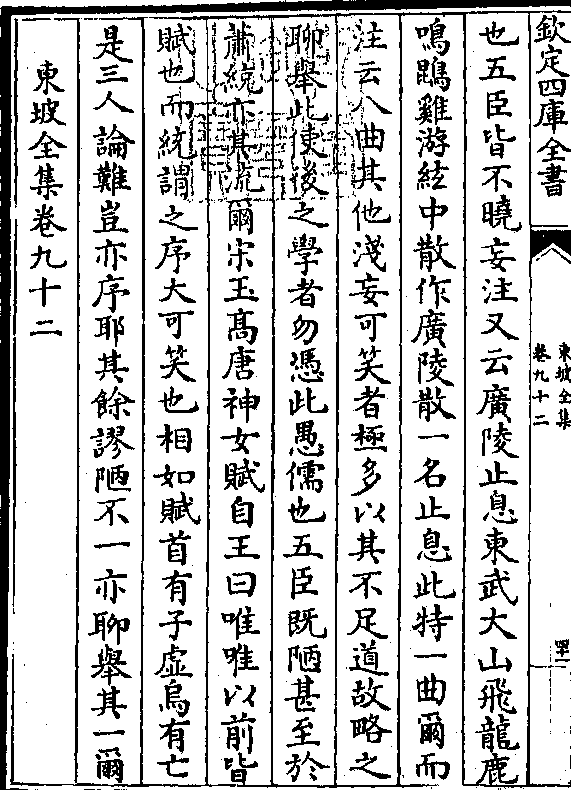 欽定四庫全書
東坡全集
卷九十二
也五臣皆不曉妄注又云廣陵止息東武大山飛龍鹿
鳴鵾雞游絃中散作廣陵散一名止息此特一曲爾而
注云八曲其他淺妄可笑者極多以其不足道故略之
聊舉此使後之學者勿憑此愚儒也五臣既陋甚至於
蕭統亦其流爾宋玉高唐神女賦自王曰唯唯以前皆
賦也而統謂之序大可笑也相如賦首有子虛烏有亡
是三人論難豈亦序耶其餘謬陋不一亦聊舉其一爾
東坡全集卷九十二